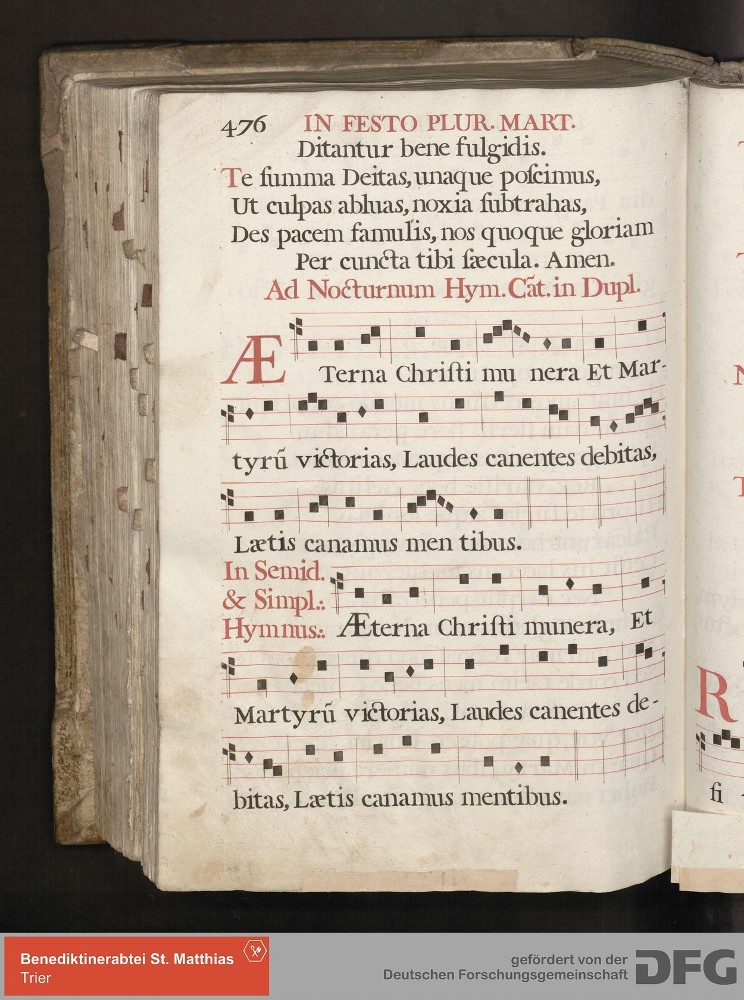 476 IN FESTO PLUR. MART.
Ditantur bene fulgidis.
Te ſumma Deitas, unaque poſcimus,
Ut culpas abluas, noxia ſubtrahas,
Des pacem famulis, nos quoque gloriam
Per cuncta tibi ſæcula. Amen.
Ad Nocturnum Hym. Cãt. in Dupl.
Æ Terna Chriſti mu nera Et Mar-
tyrũ victorias, Laudes canentes debitas,
Lætis canamus men tibus.
In Semid.
& Simpl.:.
Hymnus:. Æterna Chriſti munera, Et
Martyrũ victorias, Laudes canentes de-
bitas, Lætis canamus mentibus.
R
ſi
Benediktinerabtei St. Matthias
Trier
gefördert von der
Deutschen Forschungsgemeinschaft
DFG